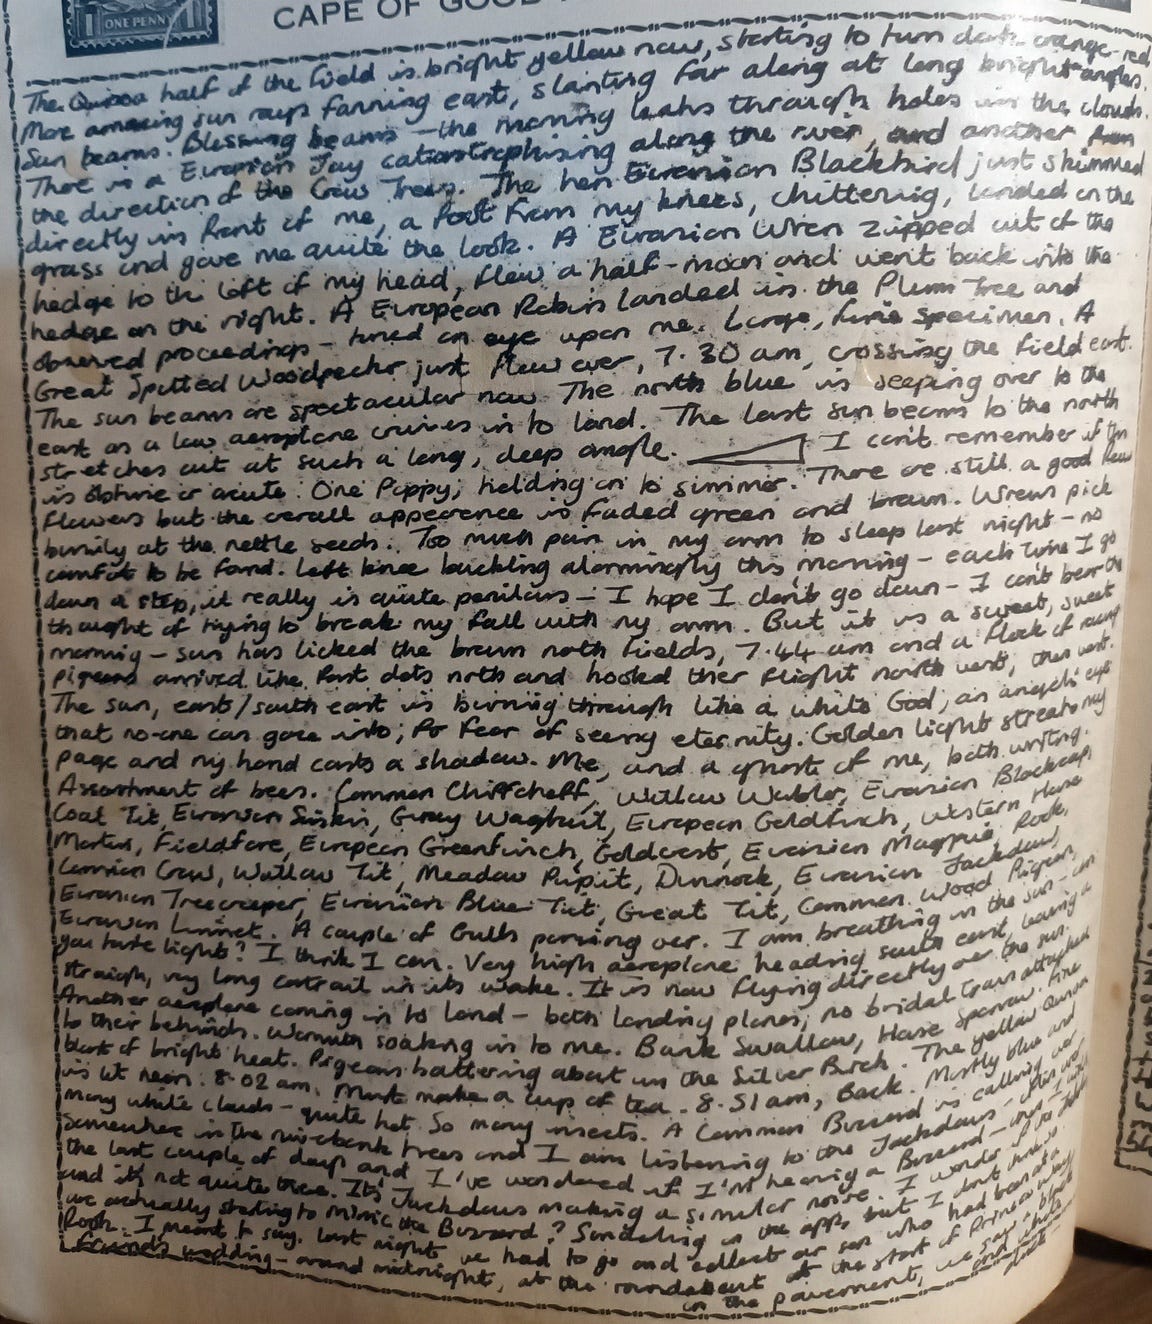 ONE PENNY
CAPE OF GOOD
The Quinoa half of the field is bright yellow now, starting to turn dark orange-red
More amazing sun rays fanning east, slanting far along at long bright angles.
Sun beams. Blessing beams - the morning leaks through holes in the clouds.
There is a Eurasian Jay catastrophising along the river, and another from
the direction of the Crow Trees. The hen Eurasian Blackbird just skimmed
directly in front of me, a foot from my knees, chittering, landed on the
grass and gave me quite the look. A Eurasian Wren zipped out of the
hedge to the left of my head, flew a half-moon and went back into the
hedge on the right. A European Robin landed in the Plum Tree and
observed proceedings - turned an eye upon me. Large, fine specimen. A
Great Spotted Woodpecker just flew over, 7.30 am, crossing the field east.
The sun beams are spectacular now. The north blue is seeping over to the
east as a low aeroplane cruises in to land. The last sun beams to the north
stretches out at such a long, deep angle. I can't remember if this
is obtuse or acute. One Poppy, holding on to summer. There are still a good few
flowers but the overall appearance is faded green and brown. Wrens pick
busily at the nettle seeds. Too much pain in my arm to sleep last night - no
comfort to be found. Left knee buckling alarmingly this morning - each time I go
down a step, it really is quite perilous - I hope I don't go down - I can't bear the
thought of trying to break my fall with my arm. But it is a sweet, sweet
morning - sun has licked the brown north fields, 7.44 am and a flock of racing
pigeons arrived like fast dots north and hooked their flight north west, then west.
The sun, east/south east is burning through like a white God, an angelic eye
that no-one can gaze into, for fear of seeing eternity. Golden light streams my
page and my hand casts a shadow. Me, and a ghost of me, both writing.
Assortment of bees. Common Chiffchaff, Willow Warbler, Eurasian Blackcap,
Coal Tit, Eurasian Siskin, Grey Wagtail, European Goldfinch, Western House
Martin, Fieldfare, European Greenfinch, Goldcrest, Eurasian Magpie, Rook,
Carrion Crow, Willow Tit, Meadow Pipit, Dunnock, Eurasian Jackdaw,
Eurasian Treecreeper, Eurasian Blue Tit, Great Tit, Common Wood Pigeon,
Eurasian Linnet. A couple of Gulls passing over. I am breathing in the sun - can
you taste light? I think I can. Very high aeroplane heading south east, leaving a
straight, very long contrail in its wake. It is now flying directly over the sun.
Another aeroplane coming in to land - both landing planes, no bridal train attached
to their behinds. Warmth soaking in to me. Bank Swallow, House Sparrow. Fine
blast of bright heat. Pigeons battering about in the Silver Birch. The yellow Quinoa
is lit neon. 8.02 am. Must make a cup of tea. 8.51 am, Back. Mostly blue and
many white clouds - quite hot. So many insects. A Common Buzzard is calling over
somewhere in the riverbank trees and I am listening to the Jackdaws -
the last couple of days and I've wondered if I'm hearing a Buzzard -
and it's not quite true. It's Jackdaws making a similar noise. I wonder if the
are actually starting to mimic the Buzzard? Sundialing in the apple but I don't
Rook. I meant to say, last night we had to go and collect our son who had been at a
friend's wedding - around midnight, at the roundabout at the start of
on the pavement, we saw a black
and white